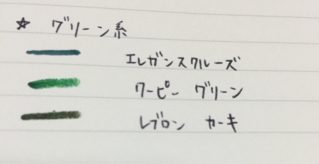 ☆ グリーン系
エレガンスクルーズ
ワーピー グリーン
レブロン カーキ